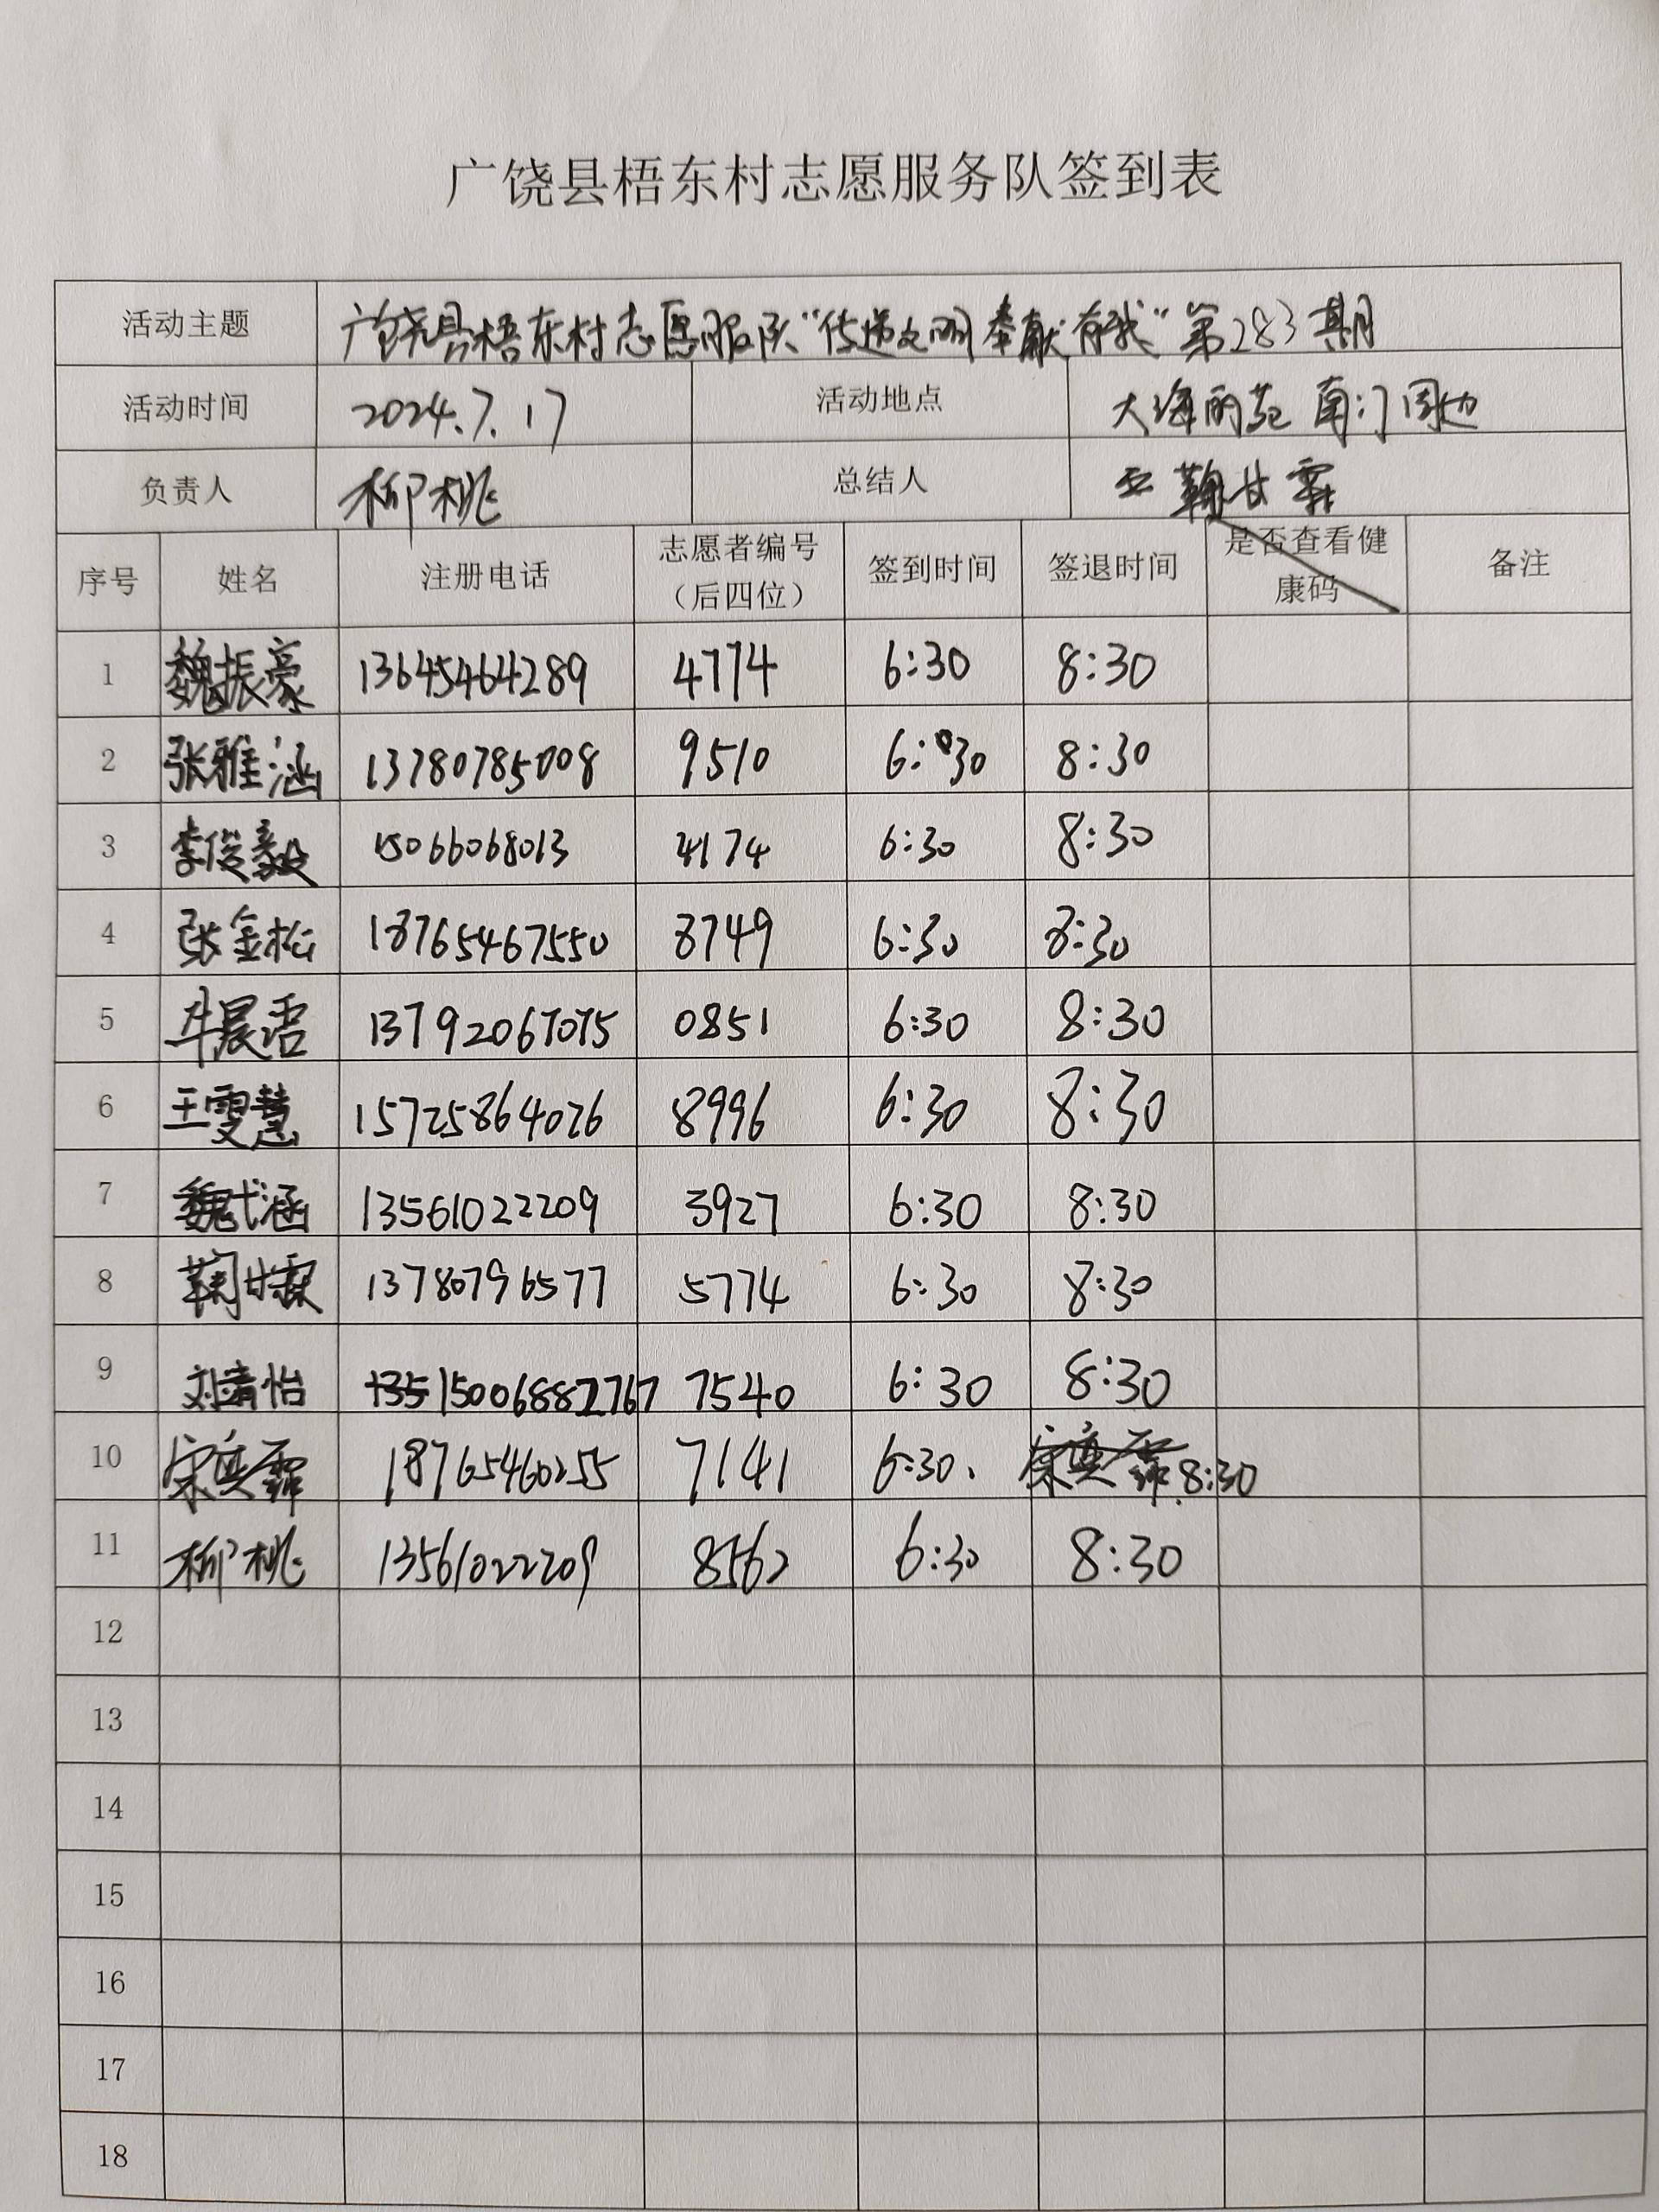 广饶县梧东村志愿服务队签到表
活动主题 广饶县梧东村志愿服队“传递文明奉献有我”第283期
活动时间 2024.7.17 活动地点 大海丽苑南门周边
负责人 柳桃 总结人 鞠甘霖
序号 姓名 注册电话 志愿者编号（后四位） 签到时间 签退时间 是否查看健康码 备注
1 魏振豪 13645464289 4774 6:30 8:30
2 张雅涵 13780785008 9510 6:30 8:30
3 李俊毅 15066068013 4174 6:30 8:30
4 张金松 18765467550 8749 6:30 8:30
5 牛晨语 13792067075 0851 6:30 8:30
6 王雯慧 15725864026 8996 6:30 8:30
7 魏弋涵 13561022209 3927 6:30 8:30
8 鞠甘霖 13780796577 5774 6:30 8:30
9 刘靖怡 7540 6:30 8:30
10 宋奕霏 18765460255 7141 6:30. 8:30
11 柳桃 13561022209 8562 6:30 8:30
12
13
14
15
16
17
18